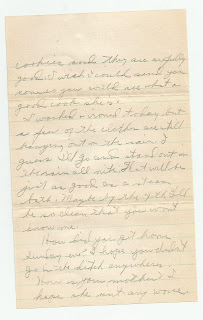 cookies and they are awfully
good. I wish I could send you
some so you could see what a
good cook she is.
I washed & ironed today but
a few of the clothes are still
hanging out in the rain. I
guess I'll go and stand out in
the rain all nite. It will be
just as good as a steam
bath. Maybe by the 7th I'll
be so clean that you won't
know me.
How did you get home
Sunday eve? I hope you didn't
go in the ditch anywhere.
How is your mother? I
hope she isn't any worse.